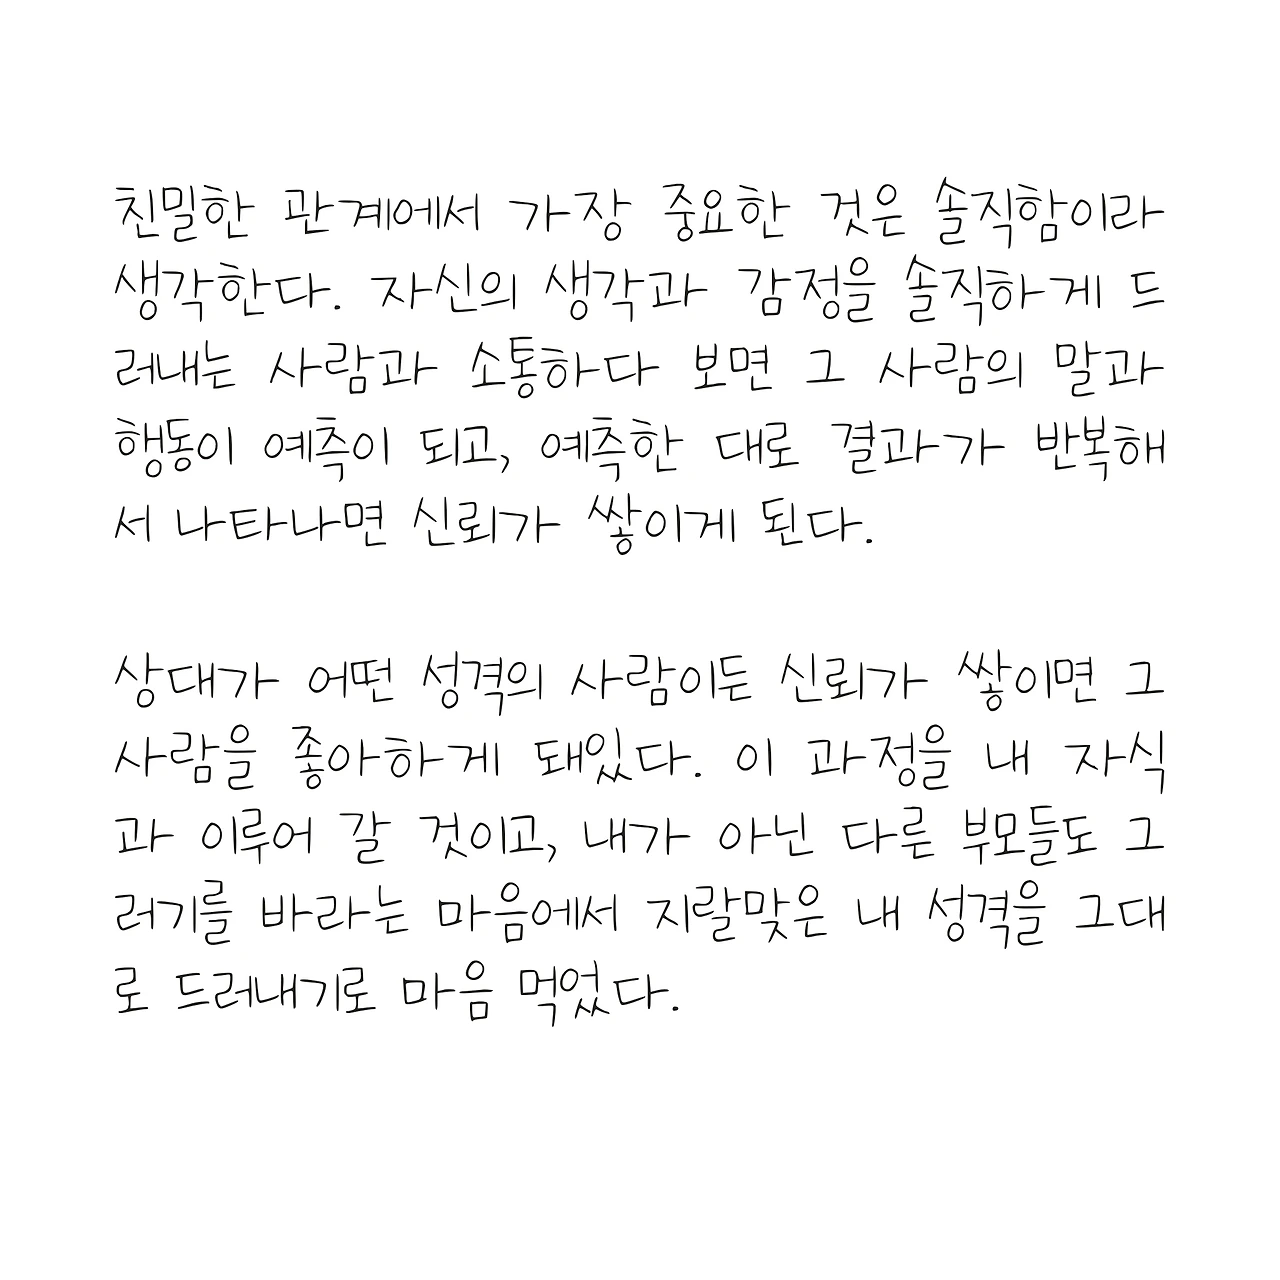 친밀한 관계에서 가장 중요한 것은 솔직함이라
생각한다. 자신의 생각과 감정을 솔직하게 드
러내는 사람과 소통하다 보면 그 사람의 말과
행동이 예측이 되고, 예측한 대로 결과가 반복해
서 나타나면 신뢰가 쌓이게 된다.
상대가 어떤 성격의 사람이든 신뢰가 쌓이면 그
사람을 좋아하게 돼있다. 이 과정을 내 자식
과 이루어 갈 것이고, 내가 아닌 다른 부모들도 그
러기를 바라는 마음에서 지랄맞은 내 성격을 그대
로 드러내기로 마음 먹었다.